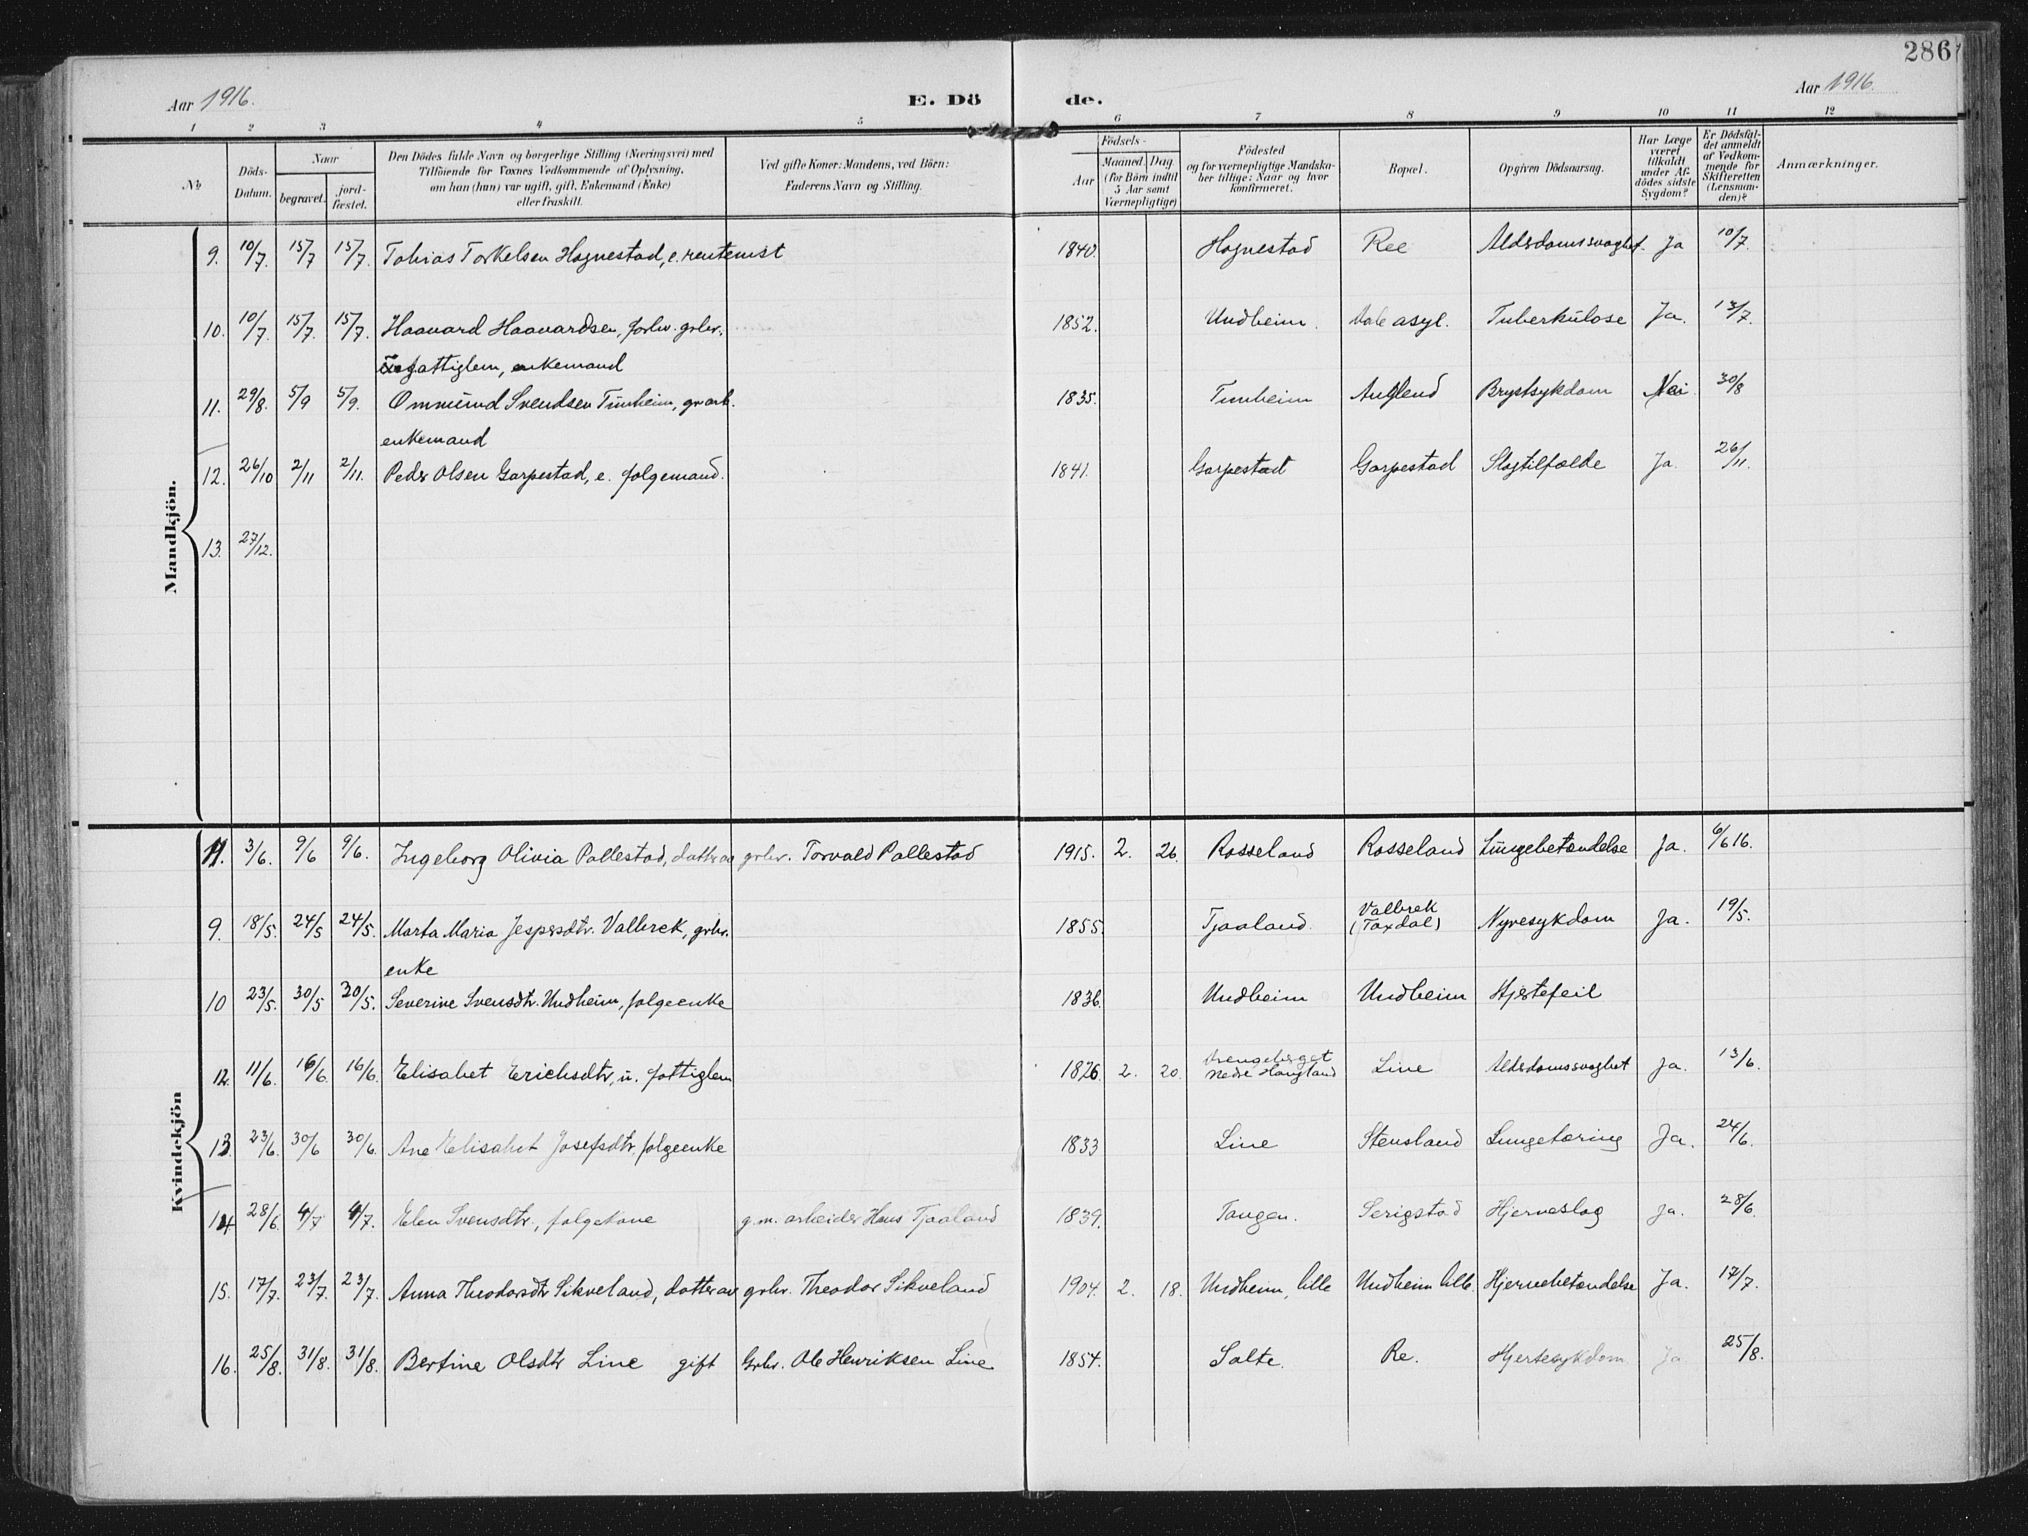 286
Aar 1916.
E. Dö de.
Aar 1916.
1 2 3 4 5 6 7 8 9 10 11 12
No
Döds-Datum.
Naar
begravet.
jord-fæstet.
Den Dödes fulde Navn og borgerlige Stilling (Næringsvei) med
Tilföiende for Voxnes Vedkommende af Oplysning,
om han (hun) var ugift, gift, Enkemand (Enke)
eller fraskilt.
Ved gifte Koner: Mandens, ved Börn:
Faderens Navn og Stilling.
Födsels-
Aar
Maaned. Dag.
(for Börn indtil
5 Aar samt
Værnepligtige)
Födested
og for værnepligtige Mandska-
ber tillige: Naar og hvor
konfirmeret.
Bopæl.
Opgiven Dödsaarsag.
Har Læge
været
tilkaldt
under Af-
dödes sidste
Sygdom?
Er Dödsfal-
det anmeldt
af Vedkom-
mende for
Skifteretten
(Lensman-
den)?
Anmærkninger.
Mandkjön.
9. 10/7. 15/7 15/7. Tobias Torkelsen Hognestad, e. rentenist 1840. Hognestad Ree Aldsdomssvaghet. Ja 10/7.
10. 10/7. 15/7. 15/7. Haavard Haavardsen, forhv. grbr. 1852. Undheim. asyl. Tuberkulose Ja. 13/7.
fattiglem, enkemand
11. 29/8. 5/9 5/9. Ommund Svendsen Tunheim, gvark. 1835. Tunheim Auglend Brystsykdom Nei 30/8
enkemand
12. 26/10 2/11 2/11. Peder Olsen Garpestad, e. folgemand. 1841. Garpestad Garpestad Slagtilfælde Ja. 26/11.
13. 27/12.
Kvindekjön
11. 3/6. 9/6 9/6. Ingeborg Olivia Pallestad, datter av grbr. Torvald Pallestad 1915. 2. 26. Rosseland Rosseland Lungebetændelse Ja. 6/6 16.
9. 18/5. 24/5 24/5. Marta Maria Jespersdtr. Valbrek, grbr. 1855. Tjaaland. Valbrek (Taxdal) Nyresykdom Ja. 19/5.
enke
10 23/5. 30/5 30/5. Severine Svensdtr. Undheim, folgeenke 1836. Undheim Undheim Hjertefeil
12. 11/6. 16/6. 16/6. Elisabet Erichsdtr, u. fattiglem 1826. 2. 20. Nedre Haugland Line Aldsdomssvaghet Ja. 13/6.
13. 23/6. 30/6 30/6. Ane Elisabet Josefsdtr. folgeenke 1833 Line Stensland Lungetæring Ja. 24/6.
14 28/6 4/7 4/7. Elen Svensdtr., folgekone g. m. arbeider Hans Tjaaland 1839. Tangen. Serigstad Hjerneslag Ja. 28/6.
15. 17/7. 23/7. 23/7. Anna Theodorsdtr Sikveland, datter av grbr. Theodor Sikveland 1904. 2. 18. Undheim, lille Undheim lille Hjernebetændelse Ja. 17/7.
16. 25/8. 31/8. 31/8. Bertine Olsdtr Line gift Grbr. Ole Henriksen Line 1854. Salte. Re. Hjertesykdom Ja 25/8.